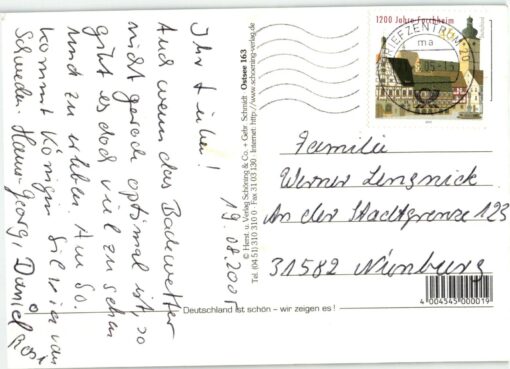 Ihr Lieben!
19.08.2005
Auch wenn das Badewetter
nicht gerade optimal ist, so
gibt es doch viel zu sehen
und zu erleben. Am So.
kommt Königin Silvia von
Schweden. Hans-Georg, Daniel
© Herst. u. Verlag Schöning & Co. + Gebr. Schmidt Ostsee 163
Tel. (04 51) 310 310 0 · Fax 31 03 130 · Internet: http://www.schoening-verlag.de
1200 Jahre Forchheim
Deutschland
BRIEFZENTRUM
ma
Familie
Werner Lengnick
An der Stadtgrenze 123
31582 Nienburg
4 004545 000019
Deutschland ist schön – wir zeigen es !